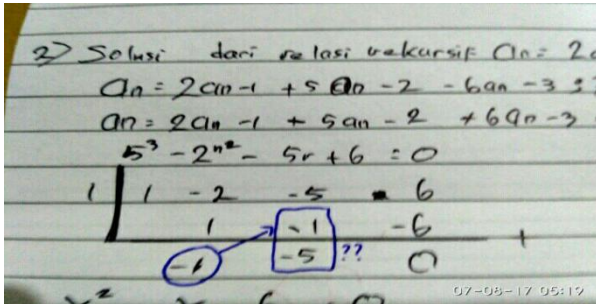 2) Solusi dari relasi rekursif an = 2
an = 2an-1 + 5an-2 - 6an-3 ;
an = 2an-1 + 5an-2 + 6an-3
5³ - 2r² - 5r + 6 = 0
1 | 1 -2 -5 6
1 -1 -6 +
-1 -5 ?? 0
07-08-17 05:19